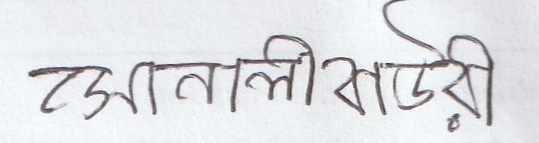 সোনালী বাউরী